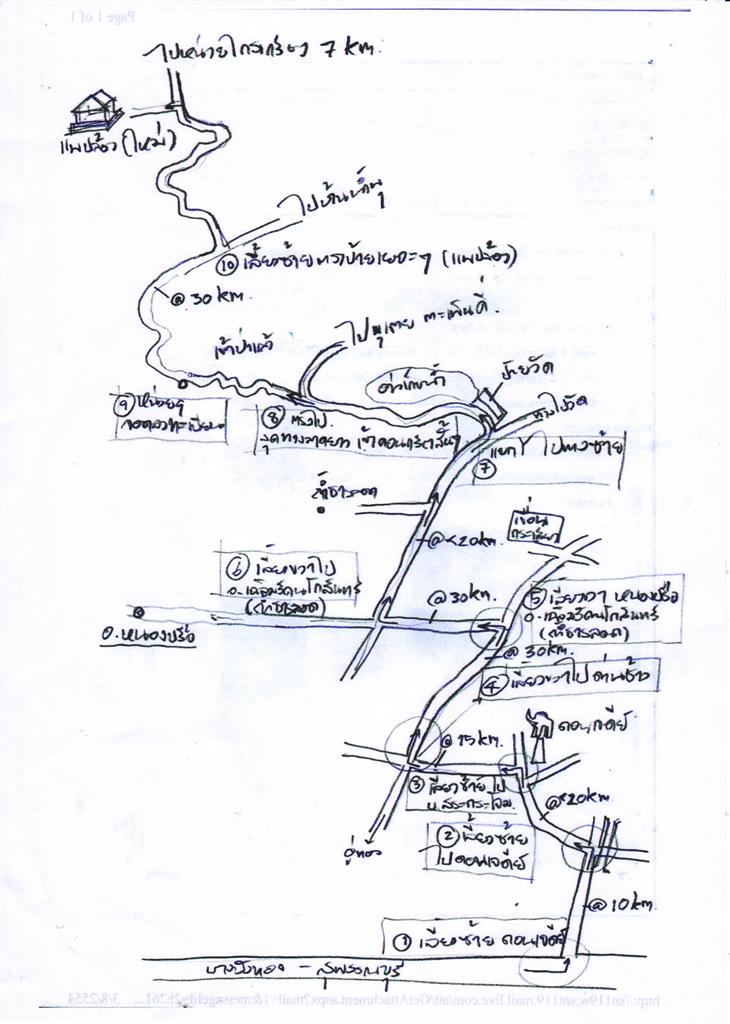 Page 1 of 1
ไปหน่วยไกรเกรียง 7 km.
แพปล้อง (ใหม่)
ไปบ้านน้ำพุ
⑩ เลี้ยวซ้าย ทางป้ายเยอะๆ (แพปล้อง)
@ 30 km.
ไปพุเตย ตะเพินคี่.
เข้าป่าแล้ว
อ่างเก็บน้ำ
ป้ายวัด
ทางไปวัด
⑨ หน่วยฯ
จอดลงทะเบียน
⑧ ตรงไป.
สุดทางลาดยาง เข้าคอนกรีตสั้นๆ
แยก Y ไปทางซ้าย
⑦
ถ้ำธารลอด
@ <20 km.
เขื่อน
กระเสียว
⑥ เลี้ยวขวาไป
อ. เฉลิมรัตนโกสินทร์
(ถ้ำธารลอด)
@ 30 km.
⑤ เลี้ยวขวา หนองปรือ
อ. เฉลิมรัตนโกสินทร์
(ถ้ำธารลอด)
อ. หนองปรือ
@ 30 km.
④ เลี้ยวขวาไป ด่านช้าง
@ 15 km.
ดอนเจดีย์
③ เลี้ยวซ้าย ไป
บ. สระกระโจม
@ 20 km.
อู่ทอง
② เลี้ยวซ้าย
ไปดอนเจดีย์
@ 10 km.
① เลี้ยวซ้าย ดอนเจดีย์
บางบัวทอง - สุพรรณบุรี
3/8/2554